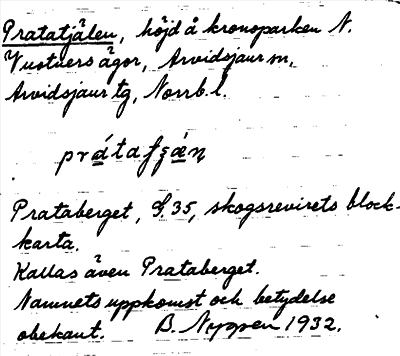 Pratatjålen, höjd å kronoparken N.
Vuotners ägor, Arvidsjaur sn,
Arvidsjaur tg, Norrb. l.
Prataberget, G. 35, skogsrevirets block-
karta.
Kallas även Prataberget.
Namnets uppkomst och betydelse
obekant. B. Nygren 1932.